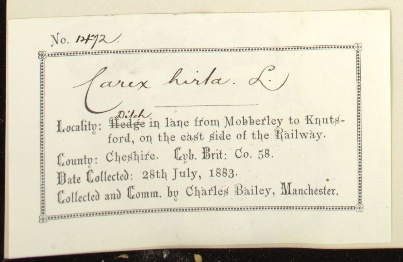 No. 1472.
Carex hirta. L.
Ditch
Locality: Hedge in lane from Mobberley to Knuts-
ford, on the east side of the Railway.
County: Cheshire. Cyb. Brit: Co. 58.
Date Collected: 28th July, 1883.
Collected and Comm. by Charles Bailey, Manchester.